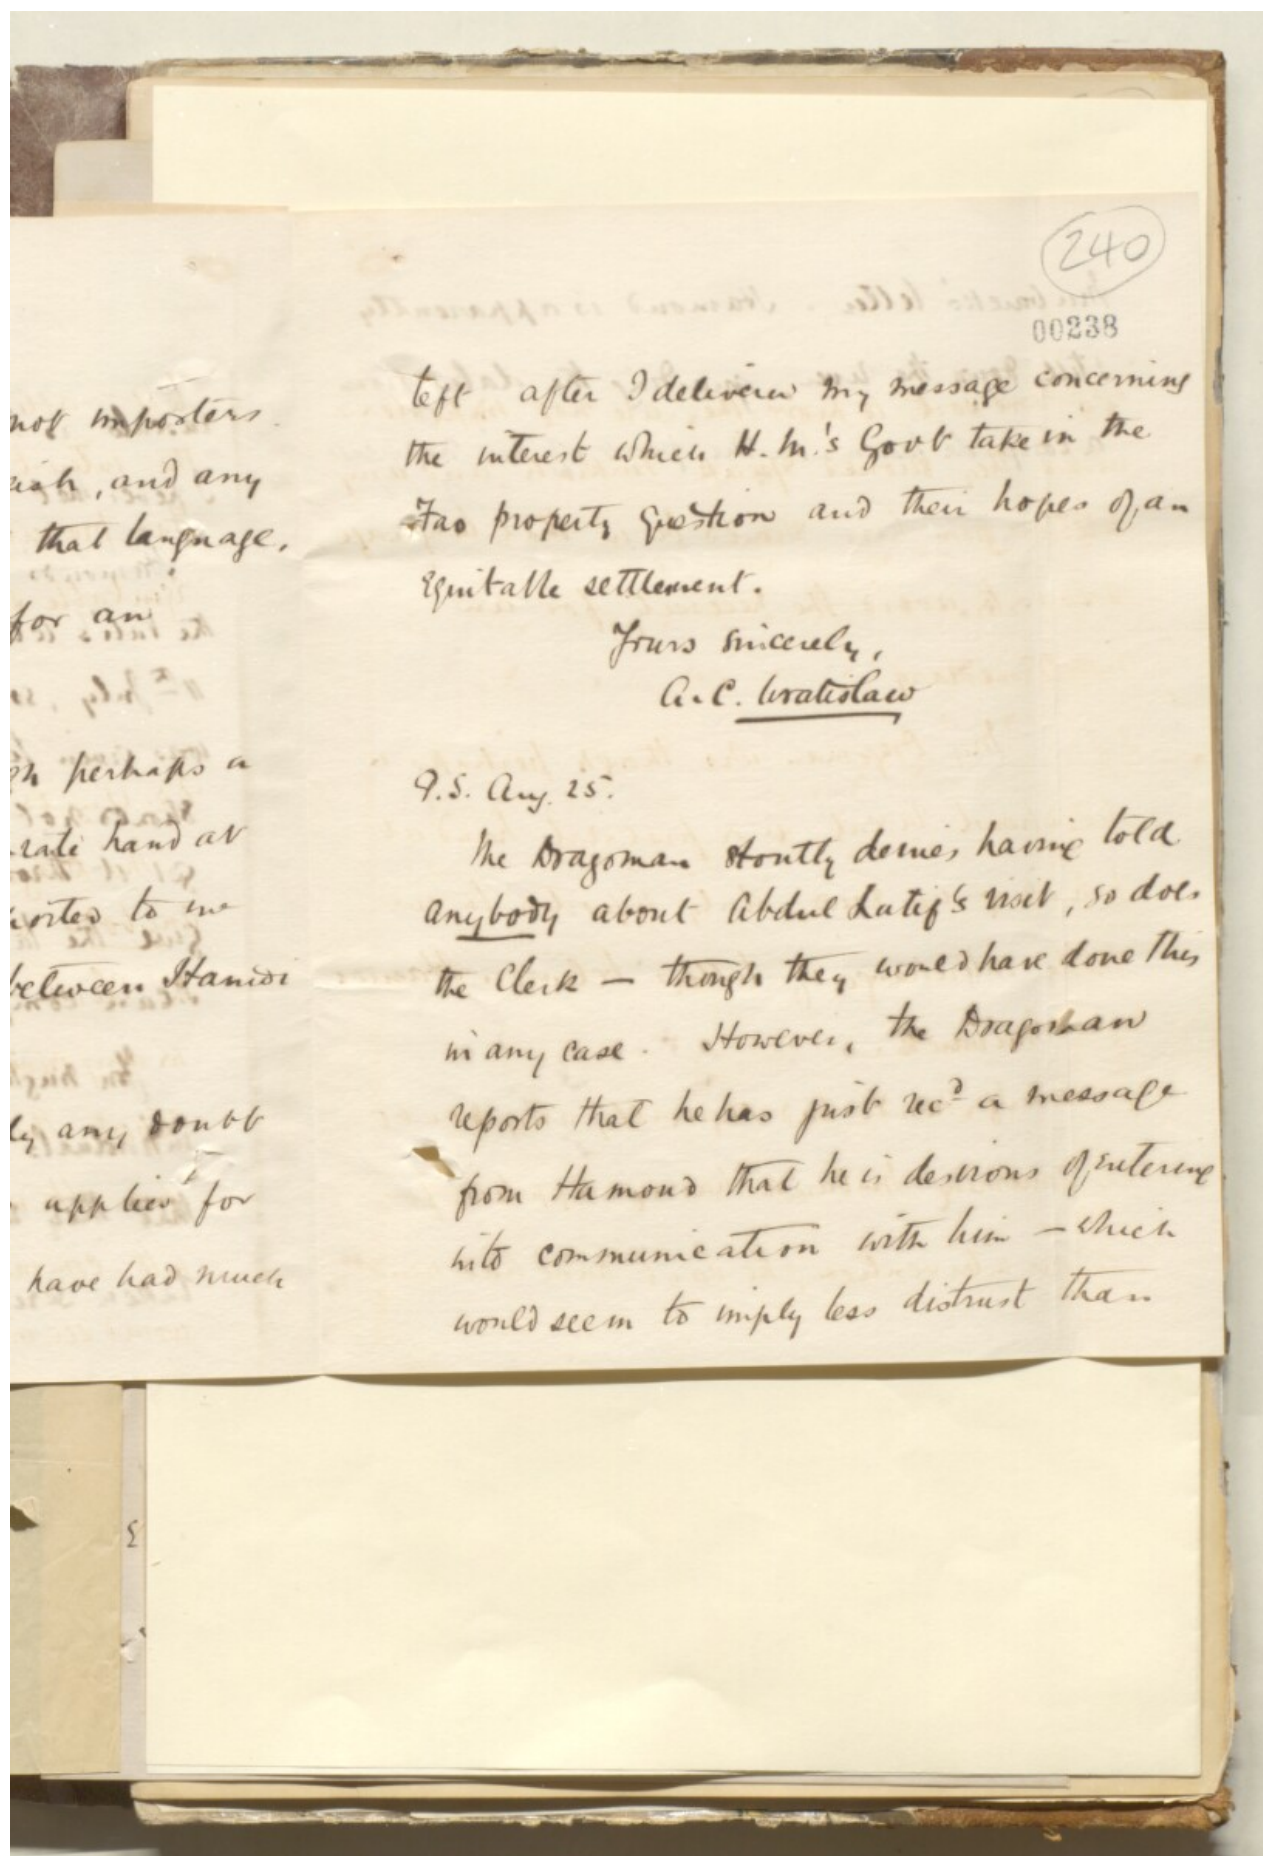 not importers
and any
that language,
for an
perhaps a
hand at
to me
between Hamdi
any doubt
applied for
have had much
240
00238
left after I delivered my message concerning
the interest which H.M.'s Govt take in the
Fao property question and their hopes of an
equitable settlement.
Yours sincerely,
A.C. Wratislaw
P.S. Aug. 25.
The Dragoman stoutly denies having told
anybody about Abdul Latif's visit, so does
the Clerk — though they would have done this
in any case. However, the Dragoman
reports that he has just recd a message
from Hamond that he is desirous of entering
into communication with him — which
would seem to imply less distrust than